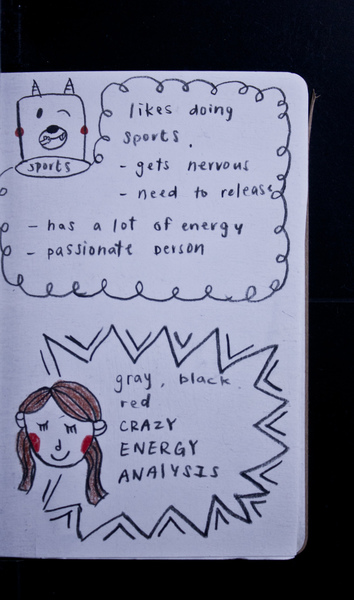 sports
likes doing
sports.
- gets nervous
- need to release
- has a lot of energy
- passionate person
gray, black
red
CRAZY
ENERGY
ANALYSIS